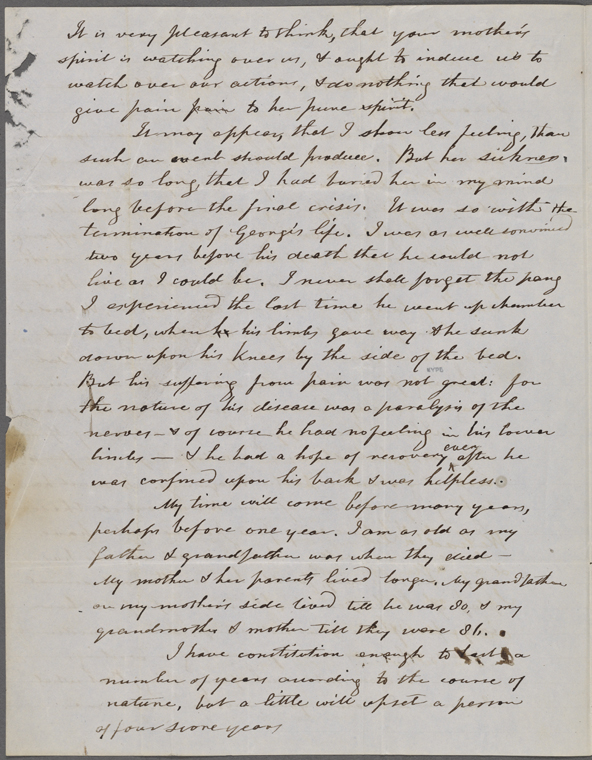 It is very pleasant to think, that your mother's
spirit is watching over us, & ought to induce us to
watch over our actions, & do nothing that would
give pain pain to her pure spirit.
It may appear, that I show less feeling, than
such an event should produce. But her sickness
was so long, that I had buried her in my mind
long before the final crisis. It was so with the
termination of George's life. I was as well convinced
two years before his death that he could not
live as I could be. I never shall forget the pang
I experienced the last time he went up chamber
to bed, when his limbs gave way & he sunk
down upon his knees by the side of the bed.
But his suffering from pain was not great: for
the nature of his disease was a paralysis of the
nerves — & of course he had no feeling in his lower
limbs — & he had a hope of recovery even after he
was confined upon his back & was helpless.
My time will come before many years,
perhaps before one year. I am as old as my
father & grandfather was when they died —
My mother & her parents lived longer. My grandfather
on my mother's side lived till he was 80, & my
grandmother & mother till they were 86.
I have constitution enough to last a
number of years according to the course of
nature, but a little will upset a person
of four score years